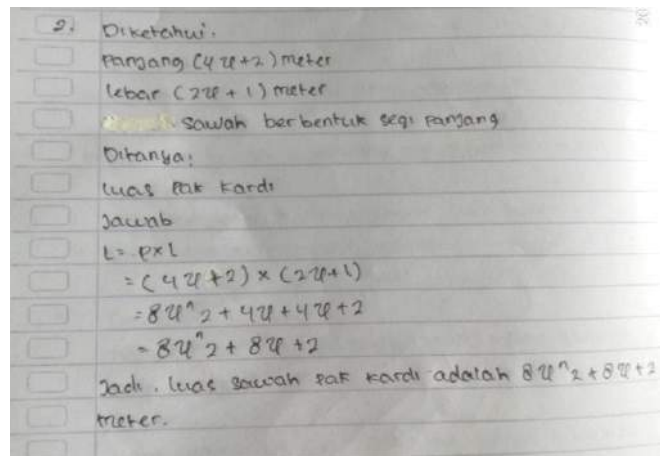 2. Diketahui.
Panjang (4x+2) meter
lebar (2x + 1) meter
sawah berbentuk segi panjang
Ditanya:
luas Pak Kardi
Jawab
L = p x l
= (4x+2) x (2x+1)
= 8x^2 + 4x + 4x + 2
= 8x^2 + 8x + 2
Jadi, luas sawah pak kardi adalah 8x^2 + 8x + 2
meter.